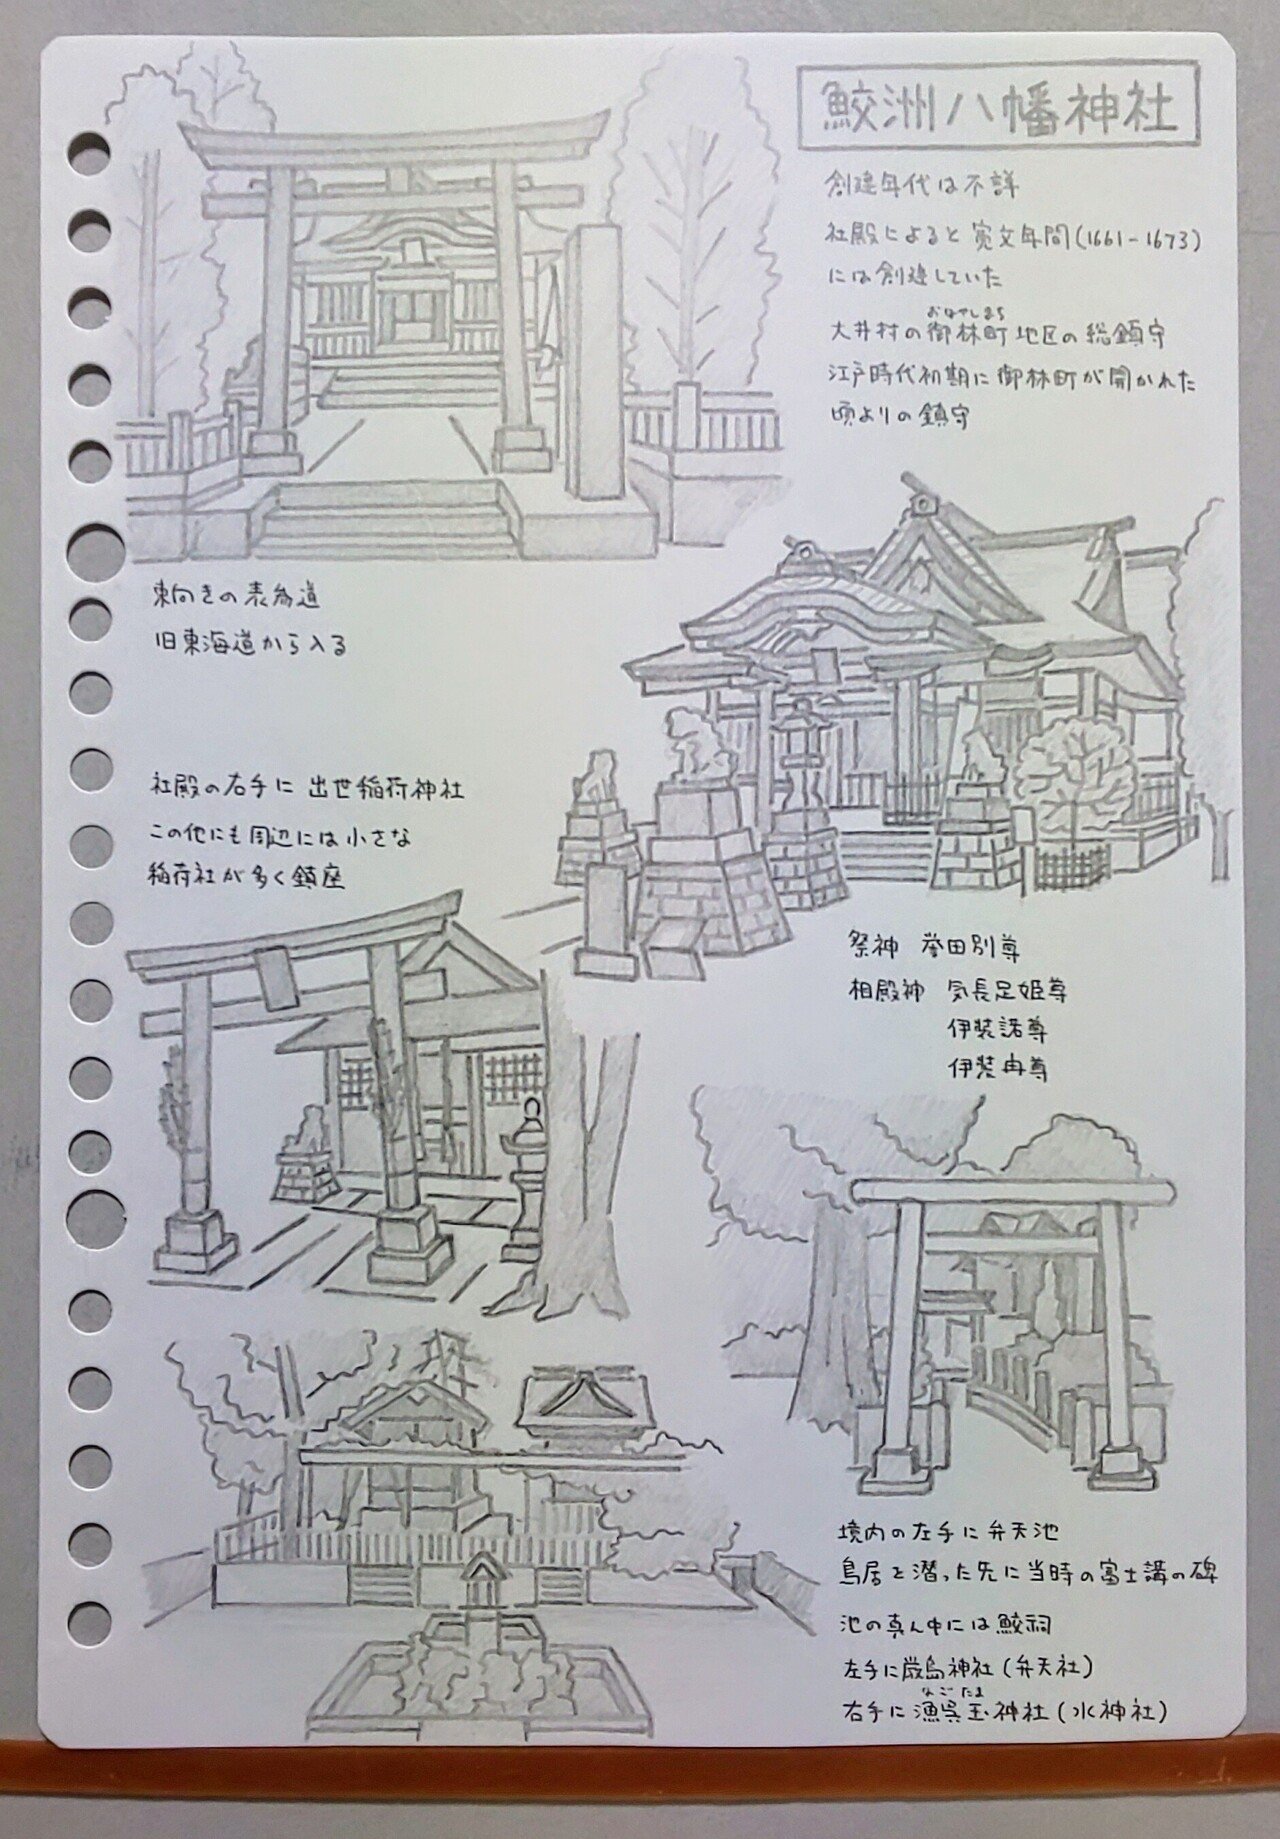 鮫洲八幡神社
創建年代は不詳
社殿によると寛文年間(1661-1673)
には創建していた
おはやしまち
大井村の御林町地区の総鎮守
江戸時代初期に御林町が開かれた
頃よりの鎮守
東向きの表参道
旧東海道から入る
社殿の右手に 出世稲荷神社
この他にも周辺には小さな
稲荷社が多く鎮座
祭神 誉田別尊
相殿神 気長足姫尊
伊弉諾尊
伊弉冉尊
境内の左手に弁天池
鳥居を潜った先に当時の富士講の碑
池の真ん中には鮫祠
左手に厳島神社(弁天社)
なごたま
右手に漁呉玉神社(水神社)